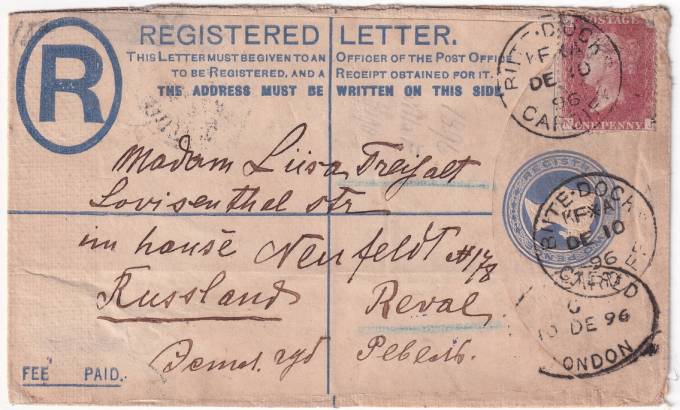 REGISTERED LETTER.
THIS LETTER MUST BE GIVEN TO AN OFFICER OF THE POST OFFICE
TO BE REGISTERED, AND A RECEIPT OBTAINED FOR IT.
THE ADDRESS MUST BE WRITTEN ON THIS SIDE
R
POSTAGE
ONE PENNY
BUTE-DOCKS
DE 10
96
CARDIFF
Madam Liisa Treifalt
Lovisenthal str
im hause Neufeldt #178
Russland Reval
Ревель.
REGISTR
BUTE-DOCKS
DE 10
96
10 DE 96
LONDON
FEE PAID.